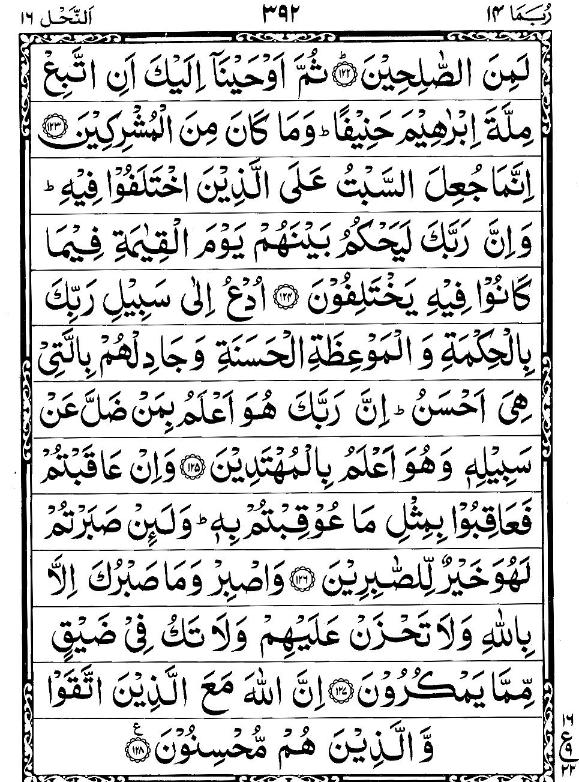 رُبَمَا ١٤ ٣٩٢ اَلنَّحْل ١٦
لَمِنَ الصّٰلِحِيْنَ ؕ﴿۱۲۲﴾ ثُمَّ اَوْحَيْنَاۤ اِلَيْكَ اَنِ اتَّبِعْ
مِلَّةَ اِبْرٰهِيْمَ حَنِيْفًا ؕ وَمَا كَانَ مِنَ الْمُشْرِكِيْنَ ﴿۱۲۳﴾
اِنَّمَا جُعِلَ السَّبْتُ عَلَى الَّذِيْنَ اخْتَلَفُوْا فِيْهِ ؕ
وَاِنَّ رَبَّكَ لَيَحْكُمُ بَيْنَهُمْ يَوْمَ الْقِيٰمَةِ فِيْمَا
كَانُوْا فِيْهِ يَخْتَلِفُوْنَ ﴿۱۲۴﴾ اُدْعُ اِلٰى سَبِيْلِ رَبِّكَ
بِالْحِكْمَةِ وَ الْمَوْعِظَةِ الْحَسَنَةِ وَجَادِلْهُمْ بِالَّتِيْ
هِيَ اَحْسَنُ ؕ اِنَّ رَبَّكَ هُوَ اَعْلَمُ بِمَنْ ضَلَّ عَنْ
سَبِيْلِهٖ وَهُوَ اَعْلَمُ بِالْمُهْتَدِيْنَ ﴿۱۲۵﴾ وَاِنْ عَاقَبْتُمْ
فَعَاقِبُوْا بِمِثْلِ مَا عُوْقِبْتُمْ بِهٖ ؕ وَلَىِٕنْ صَبَرْتُمْ
لَهُوَ خَيْرٌ لِّلصّٰبِرِيْنَ ﴿۱۲۶﴾ وَاصْبِرْ وَمَا صَبْرُكَ اِلَّا
بِاللّٰهِ وَلَا تَحْزَنْ عَلَيْهِمْ وَلَا تَكُ فِيْ ضَيْقٍ
مِّمَّا يَمْكُرُوْنَ ﴿۱۲۷﴾ اِنَّ اللّٰهَ مَعَ الَّذِيْنَ اتَّقَوْا
وَّالَّذِيْنَ هُمْ مُّحْسِنُوْنَ ﴿۱۲۸﴾ ع
١٦
ع
٩
٢٢